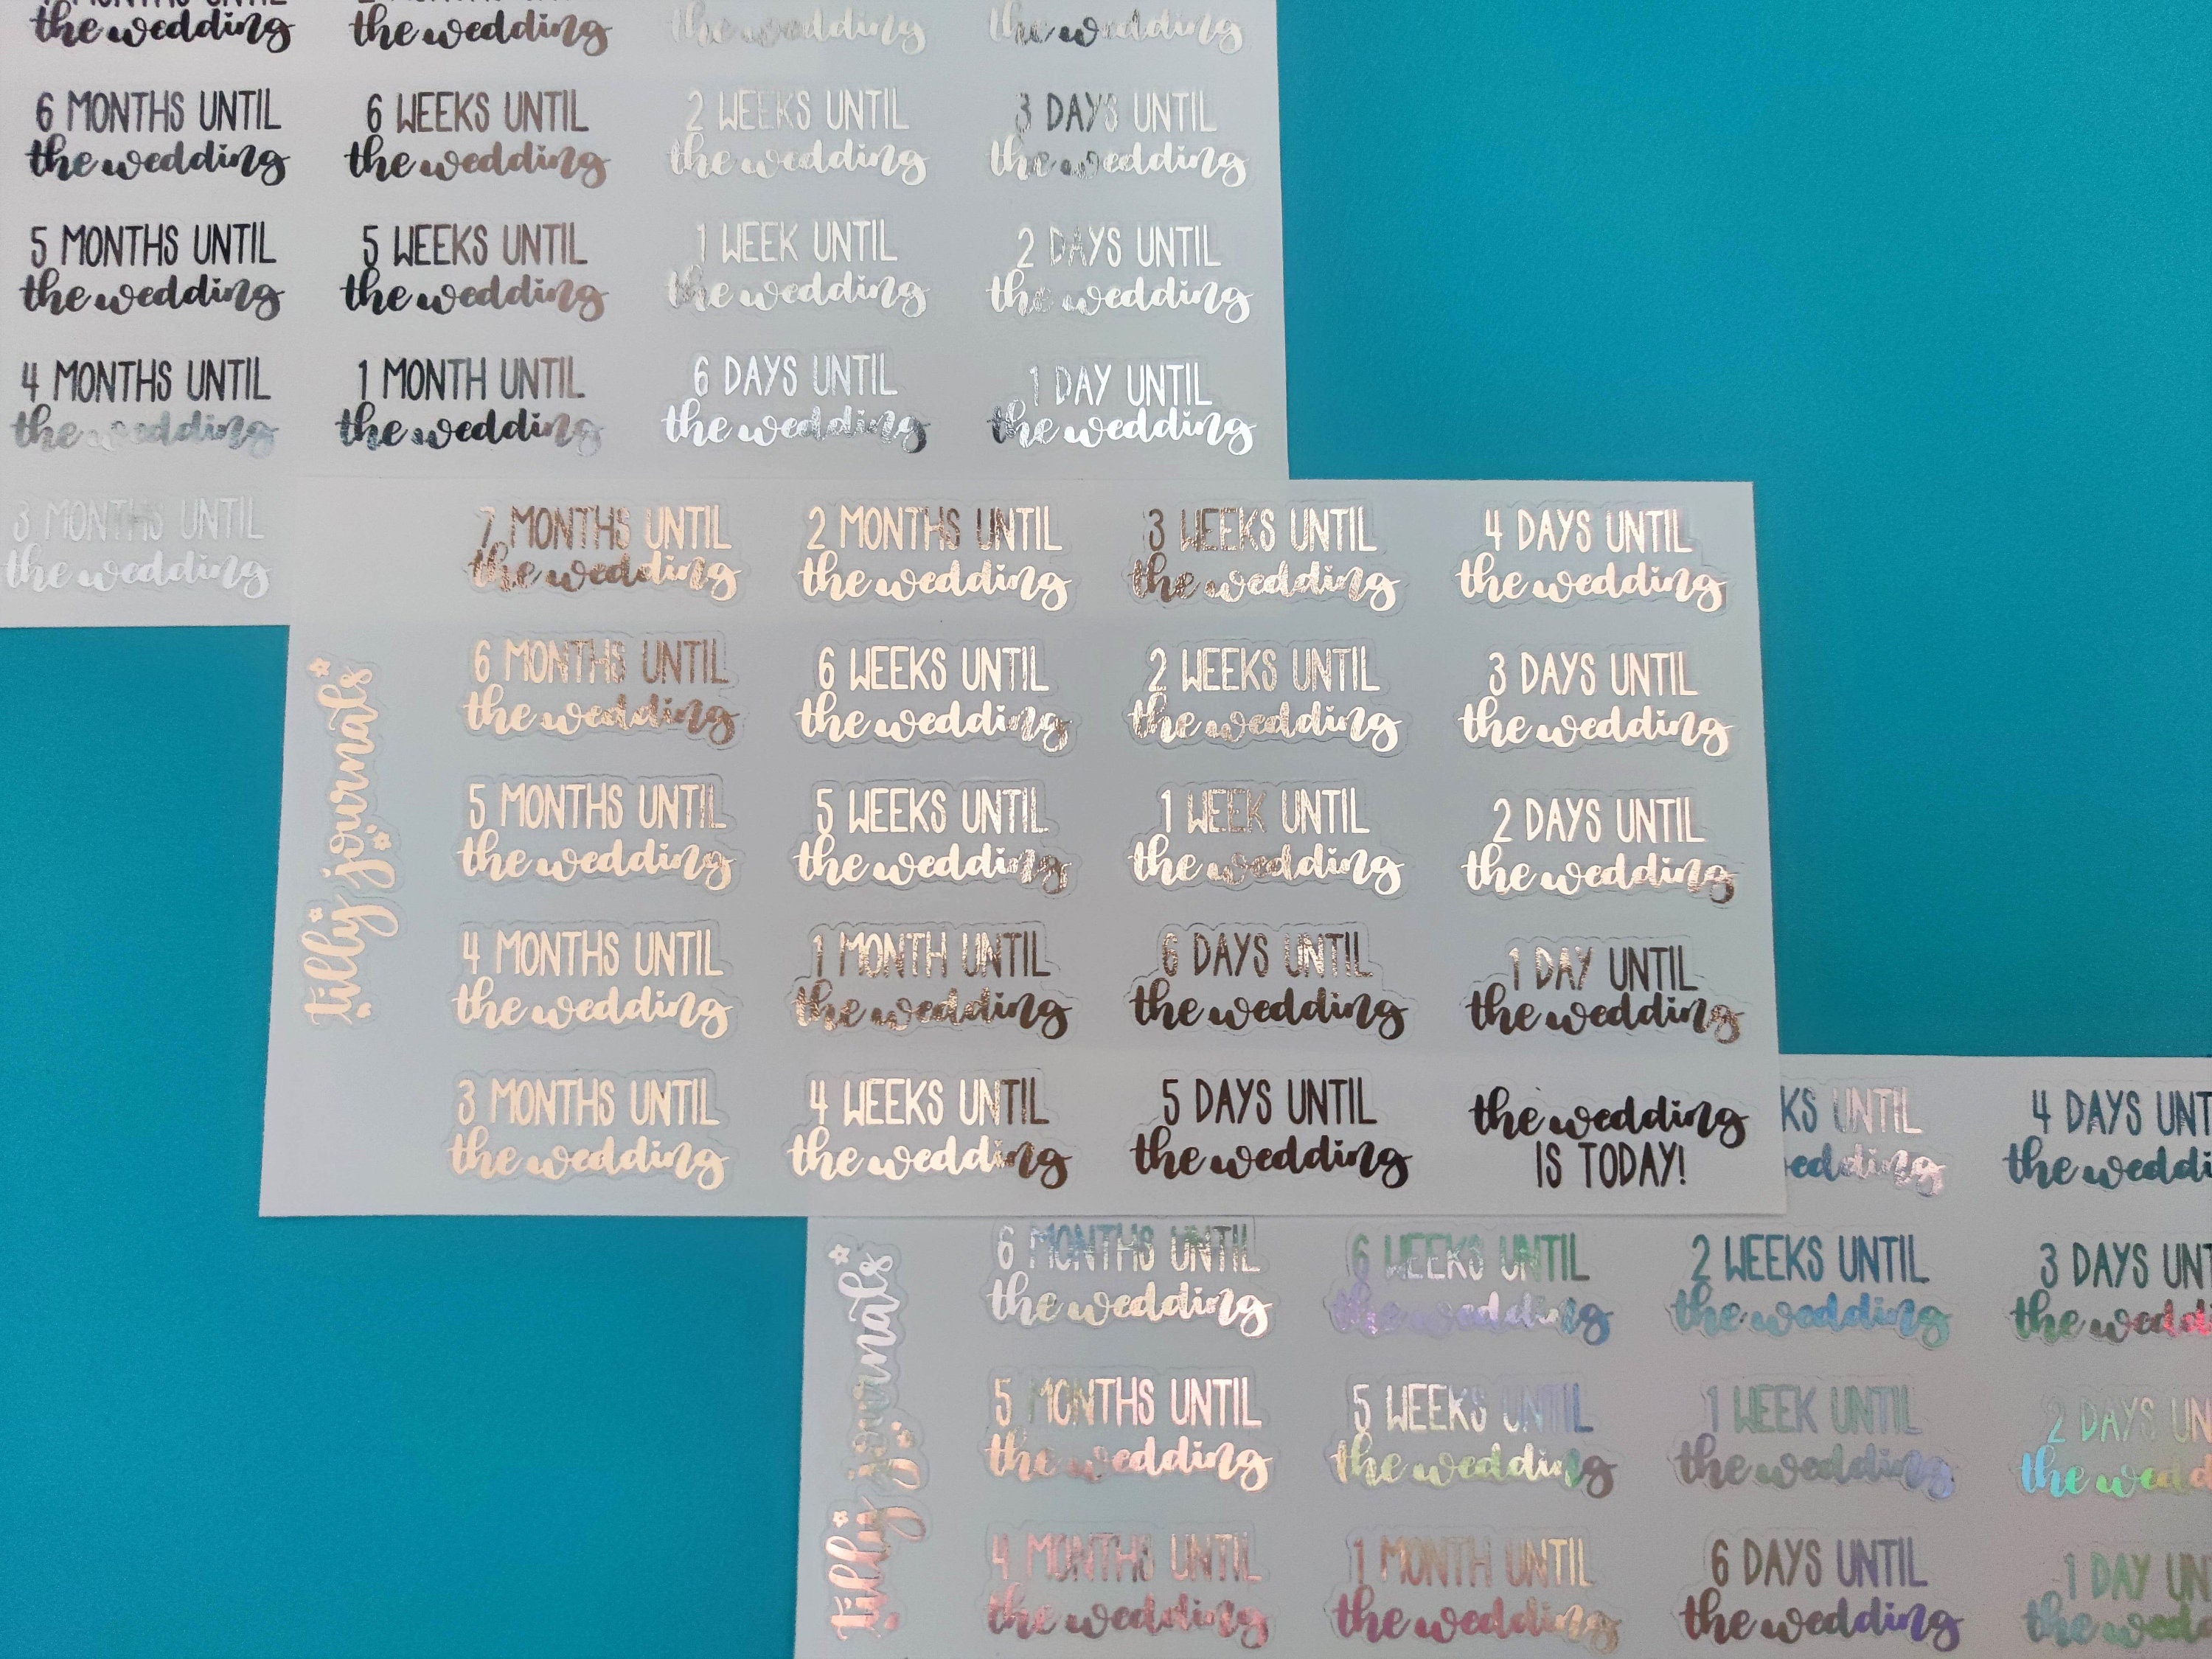 MONTHS UNTIL
the wedding
MONTHS UNTIL
the wedding
the wedding
the wedding
6 MONTHS UNTIL
the wedding
6 WEEKS UNTIL
the wedding
2 WEEKS UNTIL
the wedding
3 DAYS UNTIL
the wedding
5 MONTHS UNTIL
the wedding
5 WEEKS UNTIL
the wedding
1 WEEK UNTIL
the wedding
2 DAYS UNTIL
the wedding
4 MONTHS UNTIL
the wedding
1 MONTH UNTIL
the wedding
6 DAYS UNTIL
the wedding
1 DAY UNTIL
the wedding
3 MONTHS UNTIL
the wedding
tilly journals
7 MONTHS UNTIL
the wedding
2 MONTHS UNTIL
the wedding
3 WEEKS UNTIL
the wedding
4 DAYS UNTIL
the wedding
6 MONTHS UNTIL
the wedding
6 WEEKS UNTIL
the wedding
2 WEEKS UNTIL
the wedding
3 DAYS UNTIL
the wedding
5 MONTHS UNTIL
the wedding
5 WEEKS UNTIL
the wedding
1 WEEK UNTIL
the wedding
2 DAYS UNTIL
the wedding
4 MONTHS UNTIL
the wedding
1 MONTH UNTIL
the wedding
6 DAYS UNTIL
the wedding
1 DAY UNTIL
the wedding
3 MONTHS UNTIL
the wedding
4 WEEKS UNTIL
the wedding
5 DAYS UNTIL
the wedding
the wedding
IS TODAY!
tilly journals
KS UNTIL
edding
4 DAYS UNT
the weddi
6 MONTHS UNTIL
the wedding
6 WEEKS UNTIL
the wedding
2 WEEKS UNTIL
the wedding
3 DAYS UNT
the wedd
5 MONTHS UNTIL
the wedding
5 WEEKS UNTIL
the wedding
1 WEEK UNTIL
the wedding
2 DAYS UN
the wed
4 MONTHS UNTIL
the wedding
1 MONTH UNTIL
the wedding
6 DAYS UNTIL
the wedding
1 DAY UN
the wed